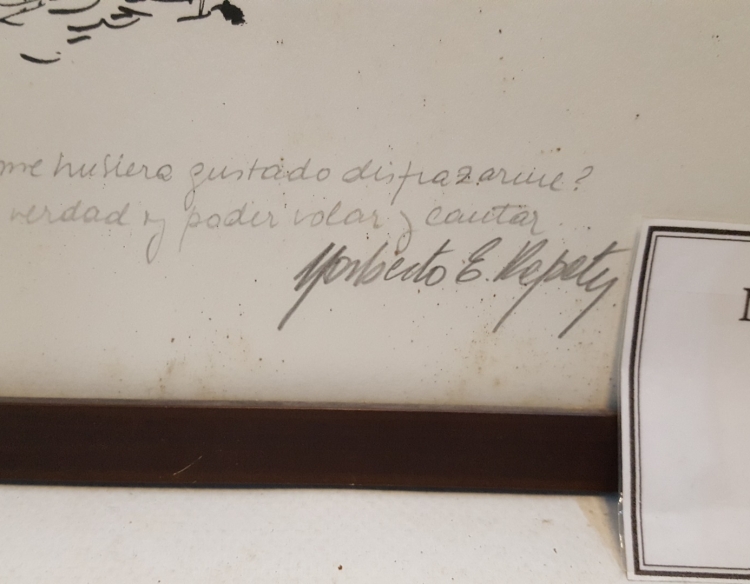 me hubiera gustado disfrazarme?
verdad y poder volar y cantar
Norberto E. Repety